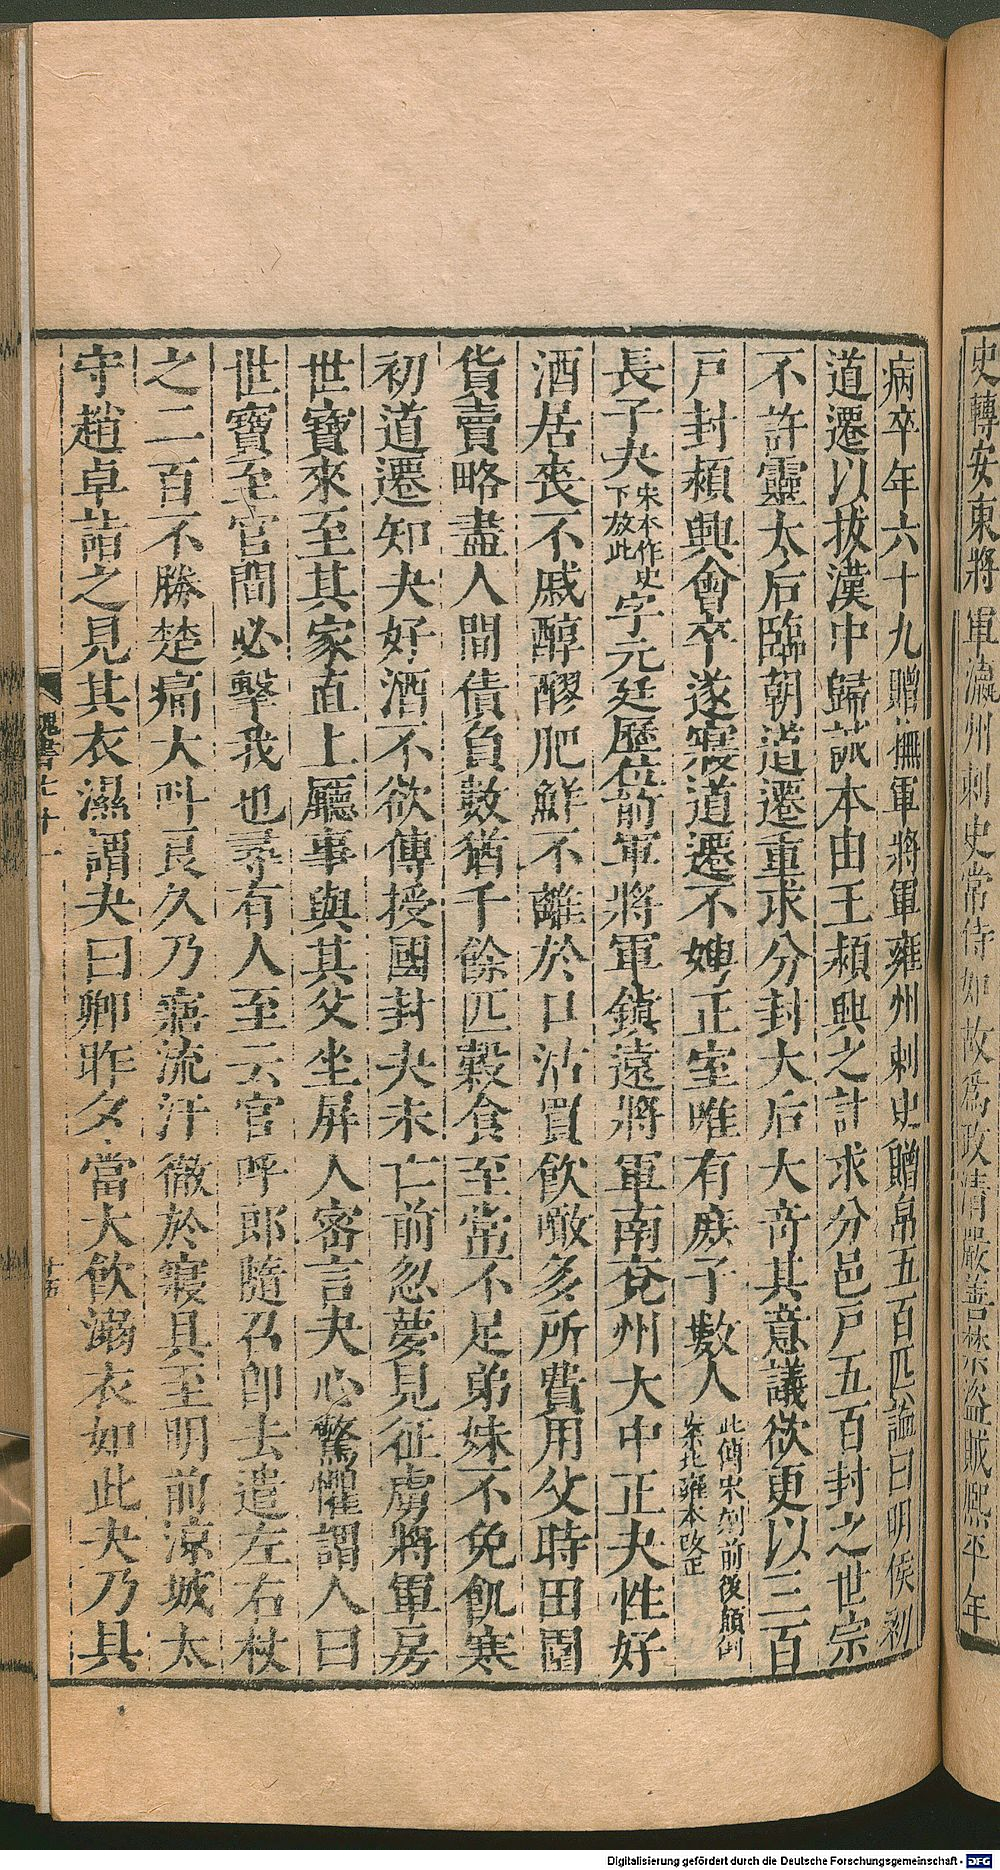 史轉安東將軍瀛州刺史常侍如故為政清嚴善禁盜賊熙平年
病卒年六十九贈撫軍將軍雍州刺史贈帛五百匹諡曰明侯初
道遷以拔漢中歸誠本由王潁興之計求分邑戶五百封之世宗
不許靈太后臨朝道遷重求分封太后大奇其意議欲更以三百
戶封潁興會卒遂寢道遷不娉正室唯有庶子數人此傳宋刻前後顛倒
長子夬宋本作史下放此字元廷歷位前軍將軍鎮遠將軍南兗州大中正夬性好
酒居喪不戚醇醪肥鮮不離於口沽買飲噉多所費用父時田園
貨賣略盡人間債負數猶千餘匹穀食至常不足弟妹不免飢寒
初道遷知夬好酒不欲傳授國封夬未亡前忽夢見征虜將軍房
世寶來至其家直上廳事與其父坐屏人密言夬心驚懼謂人曰
世寶至官間必擊我也尋有人至云官呼郎隨召即去遣左右杖
之二百不勝楚痛大叫良久乃寤流汗徹於寢具至明前涼城太
守趙卓詣之見其衣濕謂夬曰卿昨夕當大飲溺衣如此夬乃具
魏書七十一
十五
Digitalisierung gefördert durch die Deutsche Forschungsgemeinschaft - DFG